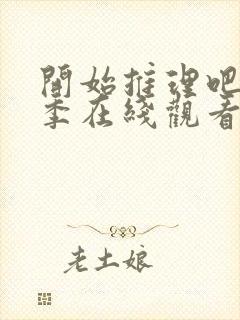 開始推理吧
季在綫觀看
老土娘